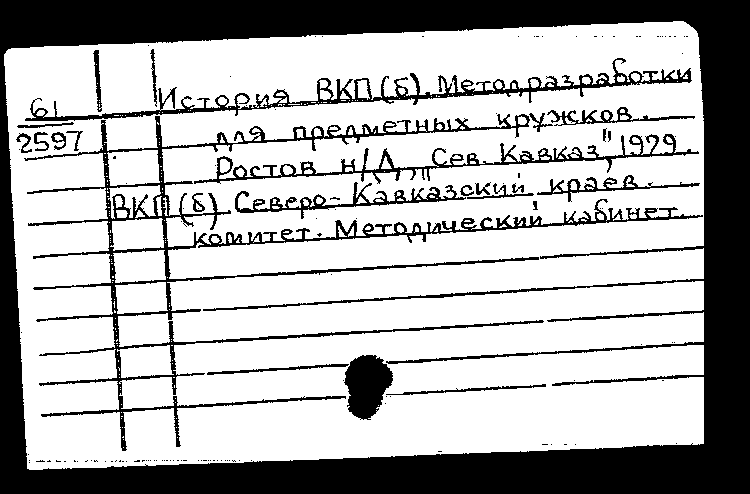 61
2597
История ВКП(б). Метод.разработки
для предметных кружков.
Ростов н/Д, „Сев. Кавказ", 1929.
ВКП(б) Северо-Кавказский краев.
комитет. Методический кабинет.